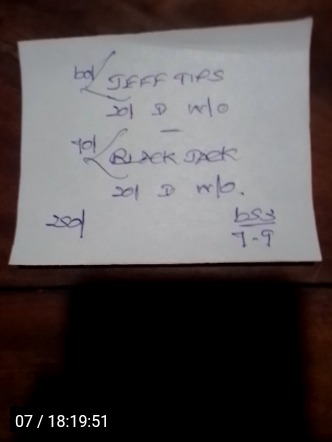 60/ JEFF TIPS
20/ D W/O
70/ BLACK JACK
20/ D W/O.
250/
7-9
07 / 18:19:51